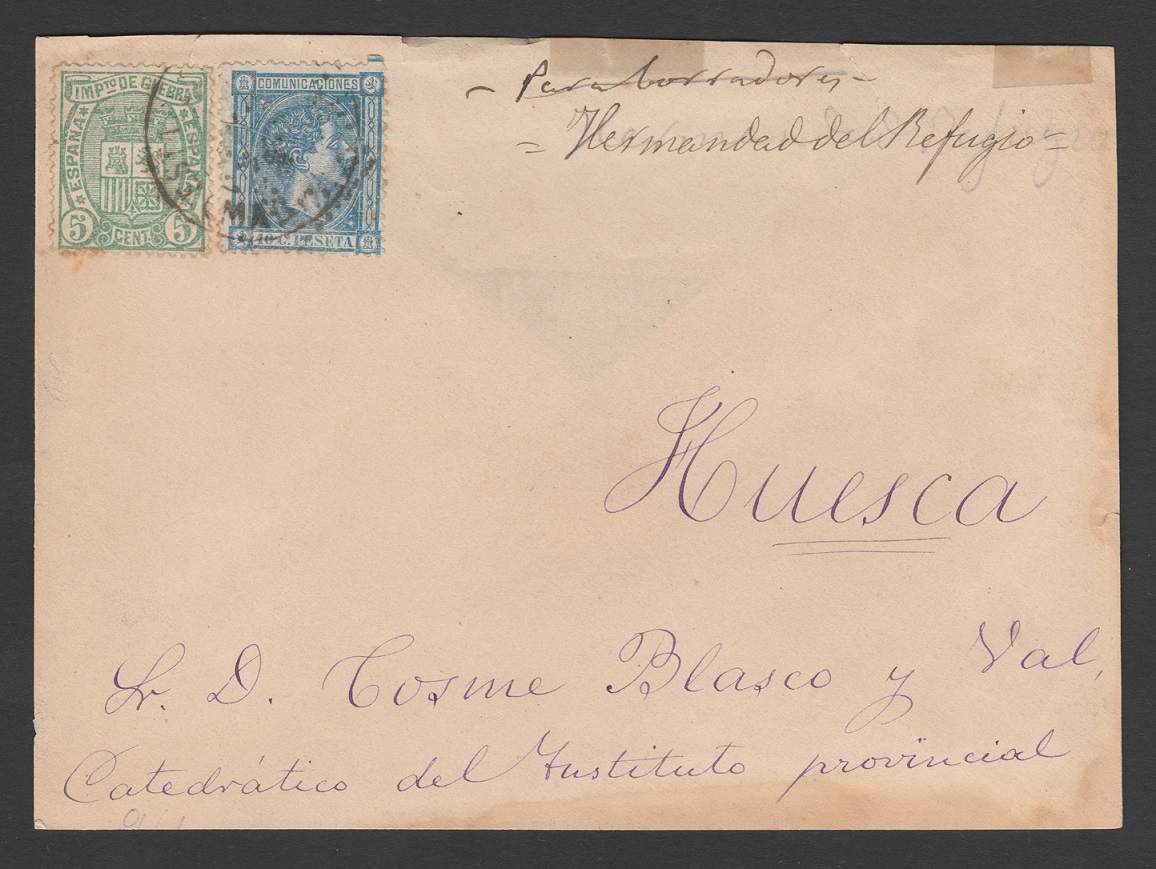 IMPTO DE GUERRA
ESPAÑA
ESPAÑA
5 CENT. 5
COMUNICACIONES
10 C. PESETA
MADRID
- Para borradores -
= Hermandad del Refugio =
Huesca
Sr. D. Cosme Blasco y Val,
Catedrático del Instituto provincial